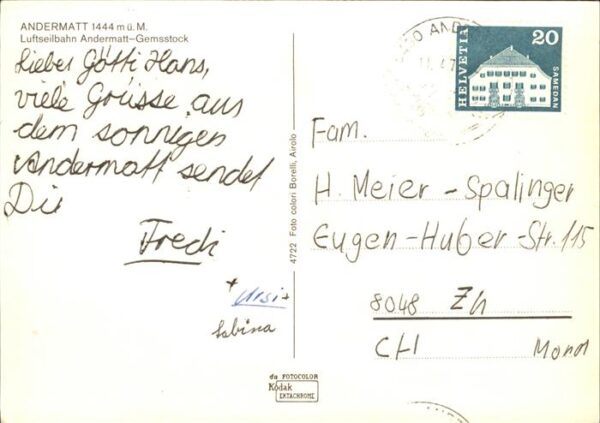 ANDERMATT 1444 m ü. M.
Luftseilbahn Andermatt-Gemsstock
Lieber Götti Hans,
viele Grüsse aus
dem sonnigen
Andermatt sendet
Dir
Fredi
+ Ursi +
Sabina
4722 Foto colori Borelli, Airolo
du FOTOCOLOR
Kodak
EKTACHROME
AND
HELVETIA
20
SAMEDAN
Fam.
H. Meier-Spalinger
Eugen-Huber-Str. 115
8048 Zh
CH